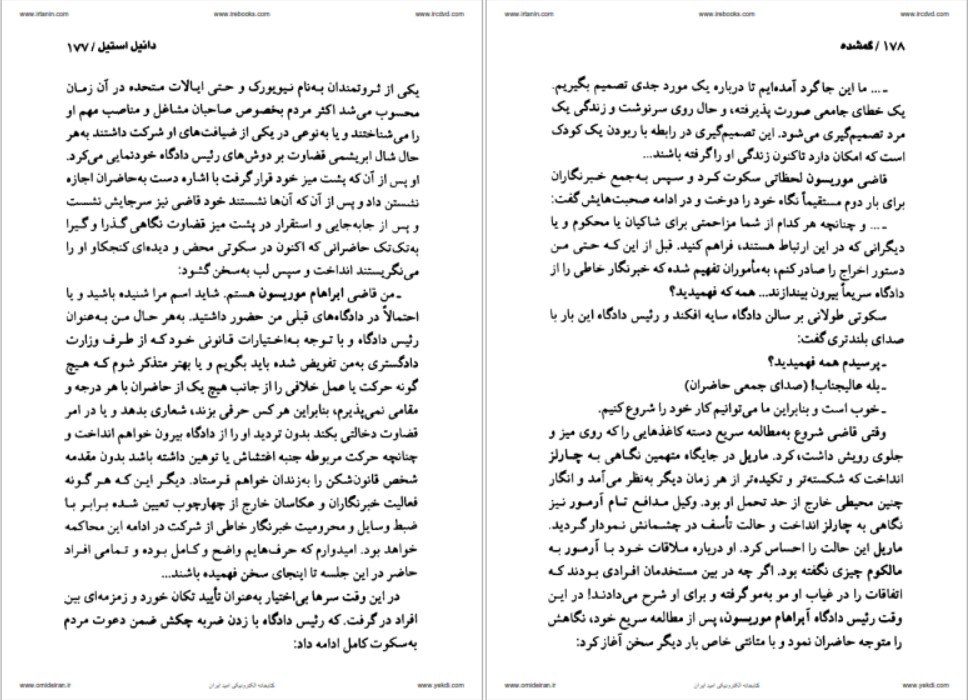 www.irtanin.com www.irebooks.com www.ircdvd.com
دانیل استیل / ۱۷۷
یکی از ثروتمندان به‌نام نیویورک و حتی ایالات متحده در آن زمان
محسوب می‌شد اکثر مردم بخصوص صاحبان مشاغل و مناصب مهم او
را می‌شناختند و یا به‌نوعی در یکی از ضیافت‌های او شرکت داشتند به‌هر
حال شال ابریشمی قضاوت بر دوش‌های رئیس دادگاه خودنمایی می‌کرد.
او پس از آن که پشت میز خود قرار گرفت با اشاره دست به‌حاضران اجازه
نشستن داد و پس از آن که آن‌ها نشستند خود قاضی نیز سرجایش نشست
و پس از جابه‌جایی و استقرار در پشت میز قضاوت نگاهی گذرا و گیرا
به‌تک‌تک حاضرانی که اکنون در سکوتی محض و دیده‌ای کنجکاو او را
می‌نگریستند انداخت و سپس لب به‌سخن گشود:
ـ من قاضی ابراهام موریسون هستم. شاید اسم مرا شنیده باشید و یا
احتمالاً در دادگاه‌های قبلی من حضور داشتید. به‌هر حال من به‌عنوان
رئیس دادگاه و با توجه به‌اختیارات قانونی خود که از طرف وزارت
دادگستری به‌من تفویض شده باید بگویم و یا بهتر متذکر شوم که هیچ
گونه حرکت یا عمل خلافی را از جانب هیچ یک از حاضران با هر درجه و
مقامی نمی‌پذیرم، بنابراین هر کس حرفی بزند، شعاری بدهد و یا در امر
قضاوت دخالتی بکند بدون تردید او را از دادگاه بیرون خواهم انداخت و
چنانچه حرکت مربوطه جنبه اغتشاش یا توهین داشته باشد بدون مقدمه
شخص قانون‌شکن را به‌زندان خواهم فرستاد. دیگر این که هر گونه
فعالیت خبرنگاران و عکاسان خارج از چهارچوب تعیین شده برابر با
ضبط وسایل و محرومیت خبرنگار خاطی از شرکت در ادامه این محاکمه
خواهد بود. امیدوارم که حرف‌هایم واضح و کامل بوده و تمامی افراد
حاضر در این جلسه تا اینجای سخن فهمیده باشند...
در این وقت سرها بی‌اختیار به‌عنوان تأیید تکان خورد و زمزمه‌ای بین
افراد در گرفت. که رئیس دادگاه با زدن ضربه چکش ضمن دعوت مردم
به‌سکوت کامل ادامه داد:
www.omideiran.ir کتابخانه الکترونیکی امید ایران www.yekdi.com
www.irtanin.com www.irebooks.com www.ircdvd.com
۱۷۸ / گمشده
ـ ... ما این جا گرد آمده‌ایم تا درباره یک مورد جدی تصمیم بگیریم.
یک خطای جامعی صورت پذیرفته، و حال روی سرنوشت و زندگی یک
مرد تصمیم‌گیری می‌شود. این تصمیم‌گیری در رابطه با ربودن یک کودک
است که امکان دارد تاکنون زندگی او را گرفته باشند...
قاضی موریسون لحظاتی سکوت کرد و سپس به‌جمع خبرنگاران
برای بار دوم مستقیماً نگاه خود را دوخت و در ادامه صحبت‌هایش گفت:
ـ ... و چنانچه هر کدام از شما مزاحمتی برای شاکیان یا محکوم و یا
دیگرانی که در این ارتباط هستند، فراهم کنید. قبل از این که حتی من
دستور اخراج را صادر کنم، به‌مأموران تفهیم شده که خبرنگار خاطی را از
دادگاه سریعاً بیرون بیندازند... همه که فهمیدید؟
سکوتی طولانی بر سالن دادگاه سایه افکند و رئیس دادگاه این بار با
صدای بلندتری گفت:
ـ پرسیدم همه فهمیدید؟
ـ بله عالیجناب! (صدای جمعی حاضران)
ـ خوب است و بنابراین ما می‌توانیم کار خود را شروع کنیم.
وقتی قاضی شروع به‌مطالعه سریع دسته کاغذهایی را که روی میز و
جلوی رویش داشت، کرد. ماریل در جایگاه متهمین نگاهی به چارلز
انداخت که شکسته‌تر و تکیده‌تر از هر زمان دیگر به‌نظر می‌آمد و انگار
چنین محیطی خارج از حد تحمل او بود. وکیل مدافع تام آرمور نیز
نگاهی به چارلز انداخت و حالت تأسف در چشمانش نمودار گردید.
ماریل این حالت را احساس کرد. او درباره ملاقات خود با آرمور به
مالکوم چیزی نگفته بود. اگر چه در بین مستخدمان افرادی بودند که
اتفاقات را در غیاب او مو به‌مو گرفته و برای او شرح می‌دادند! در این
وقت رئیس دادگاه آبراهام موریسون، پس از مطالعه سریع خود، نگاهش
را متوجه حاضران نمود و با متانتی خاص بار دیگر سخن آغاز کرد:
www.omideiran.ir کتابخانه الکترونیکی امید ایران www.yekdi.com